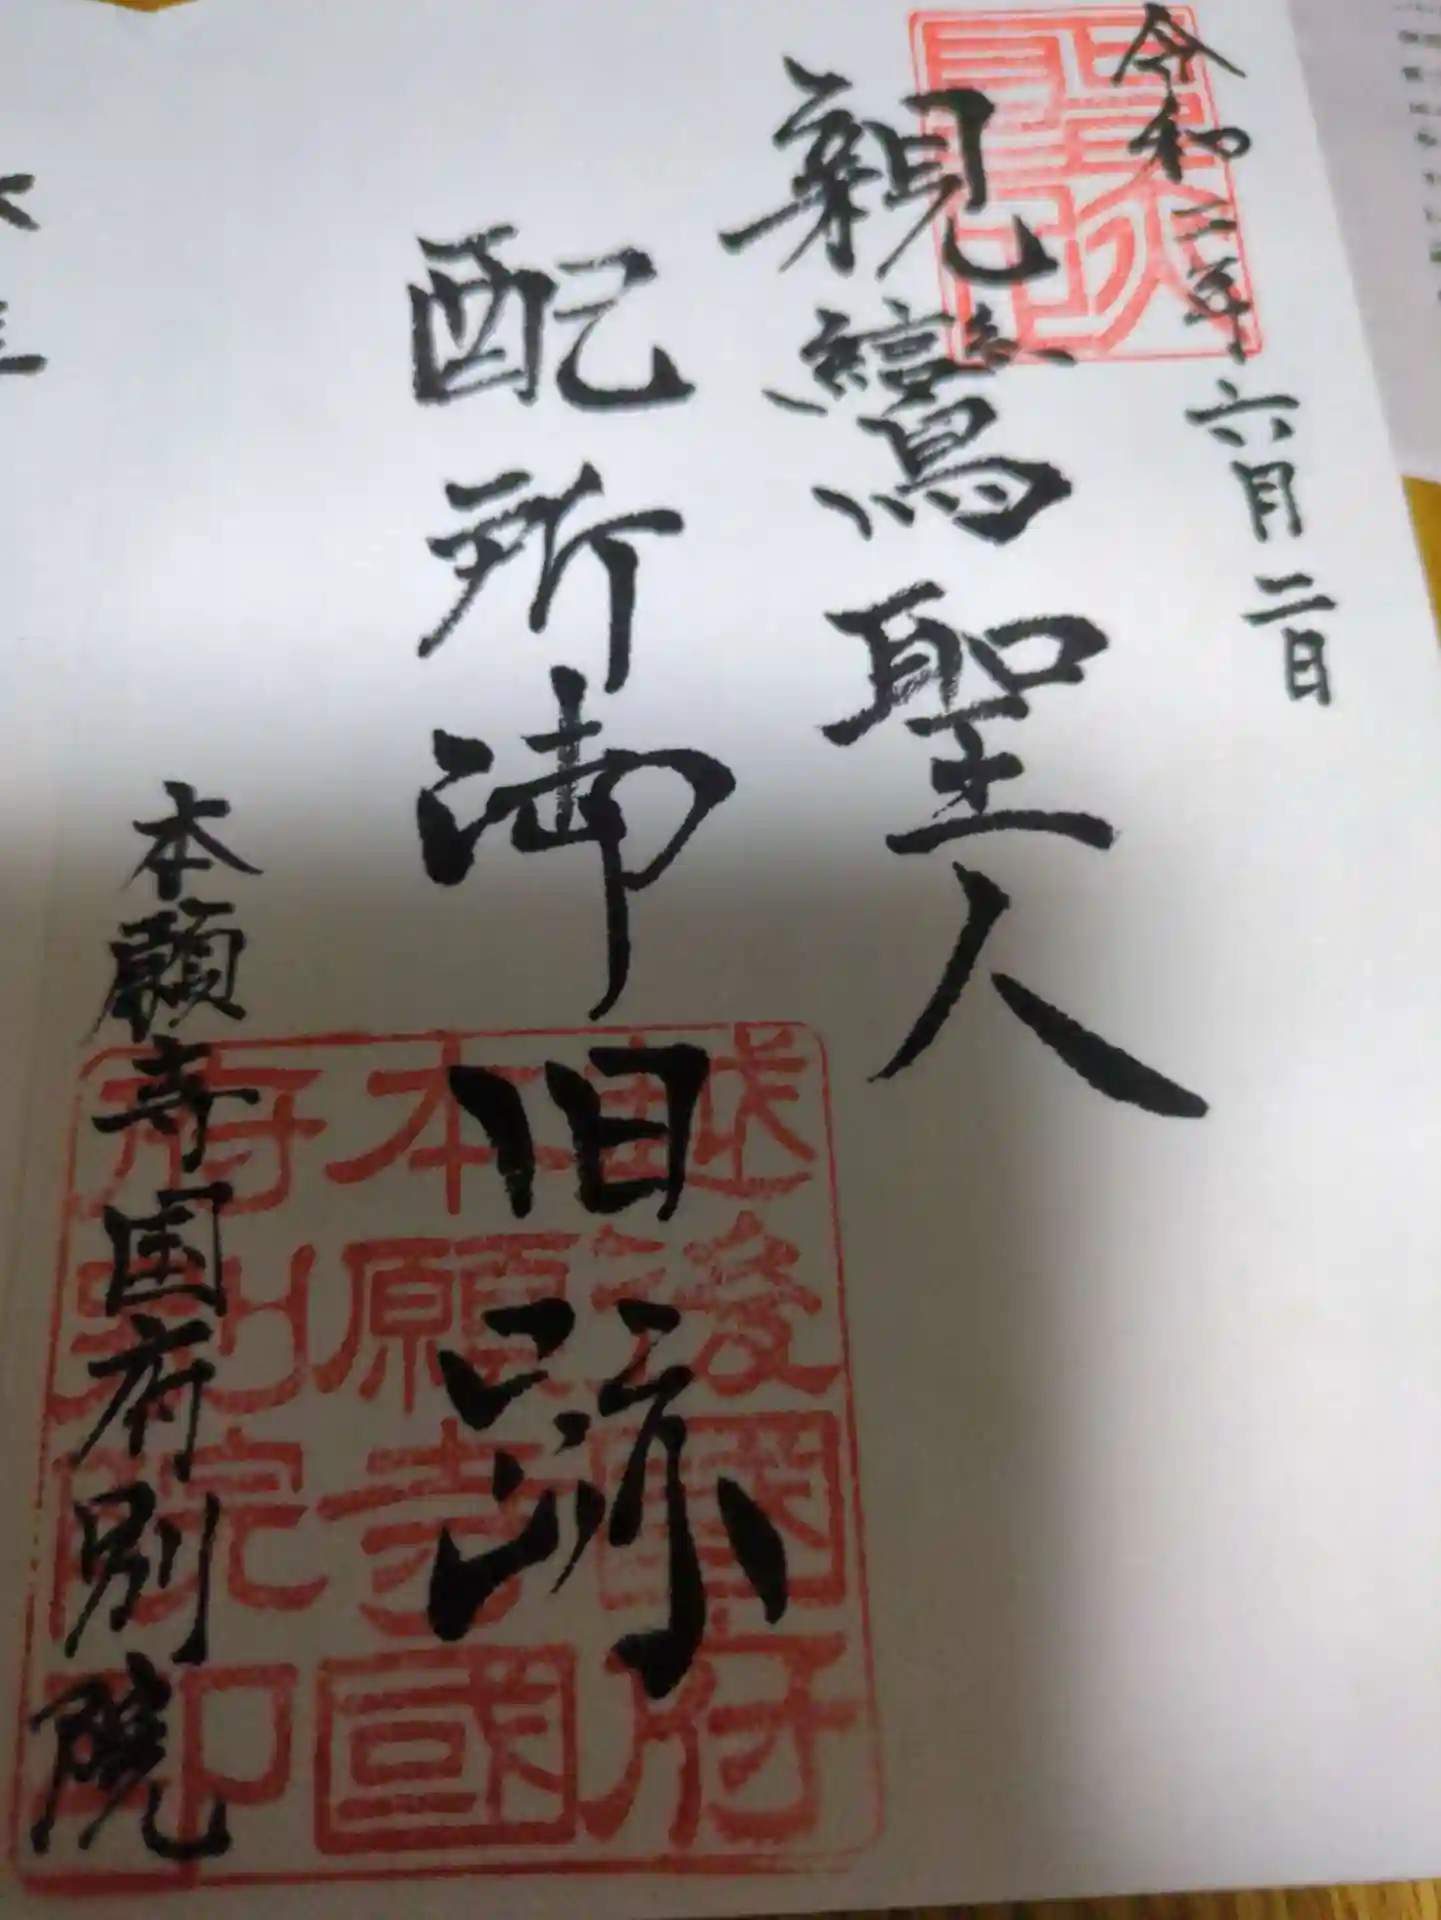 令和三年六月二日
親鸞聖人
配所御旧跡
本願寺国府別院
越後國府
本願寺國
府別院印